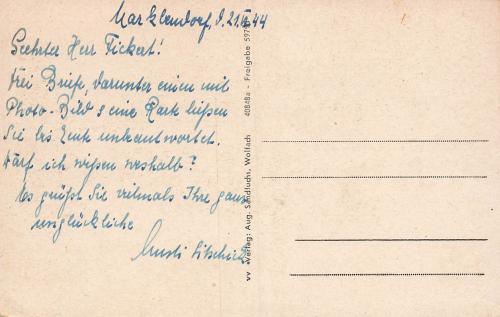 Marklendorf, d. 21.6.44
Geehrter Herr Fickert!
Drei Briefe, darunter einen mit
Photo-Bild & eine Kart ließen
Sie bis heut unbeantwortet.
Darf ich wißen weshalb?
Es grüßt Sie vielmals Ihre ganz
unglückliche
Gusti
vv Verlag: Aug. Sandfuchs, Wolfach 40848a - Freigabe